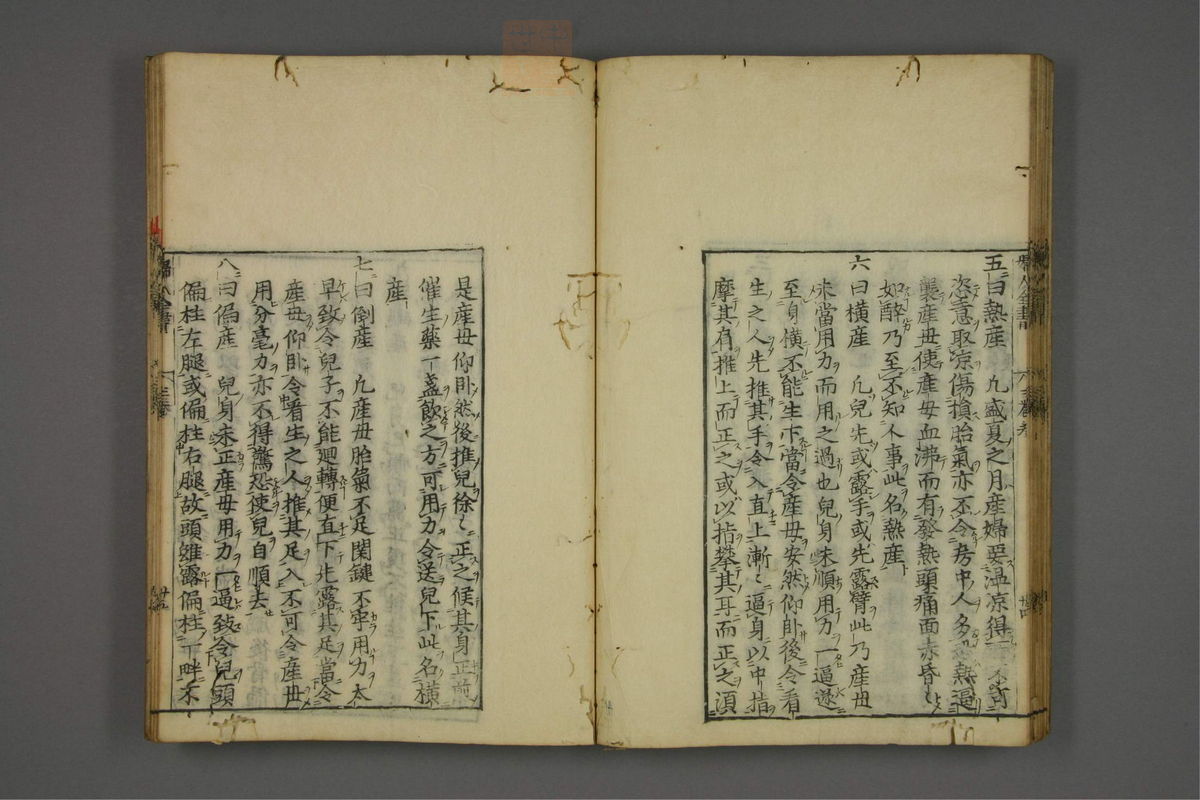 五曰熱産 凡盛夏之月産婦要温凉得 不可
恣意取凉傷損胎氣亦不令房中人多 熱逼
襲産母使産母血沸而有發熱頭痛面赤昏〻
如醉乃至不知人事此名熱産
六曰横産 凡兒先或露手或先露臂此乃産母
未當用力而用之過也兒身未順用力一逼遂
至身横不能生下當令産母安然仰卧後令看
生之人先推其手令入直上漸〻逼身以中指
摩其肩推上而正之或以指攀其耳而正之須
是産母仰卧然後推兒徐〻正之候其身正前
催生藥一盞飲之方可用力令送兒下此名横
産
七曰倒産 凡産母胎氣不足関鍵不牢用力太
早致令兒子不能廻轉便直下先露其足當令
産母仰卧令看生之人推其足入不可令産母
用分毫力亦不得驚恐使兒自順去
八曰偏産 兒身未正産母用力一逼致令兒頭
偏柱左腿或偏柱右腿故頭雖露偏柱一畔不